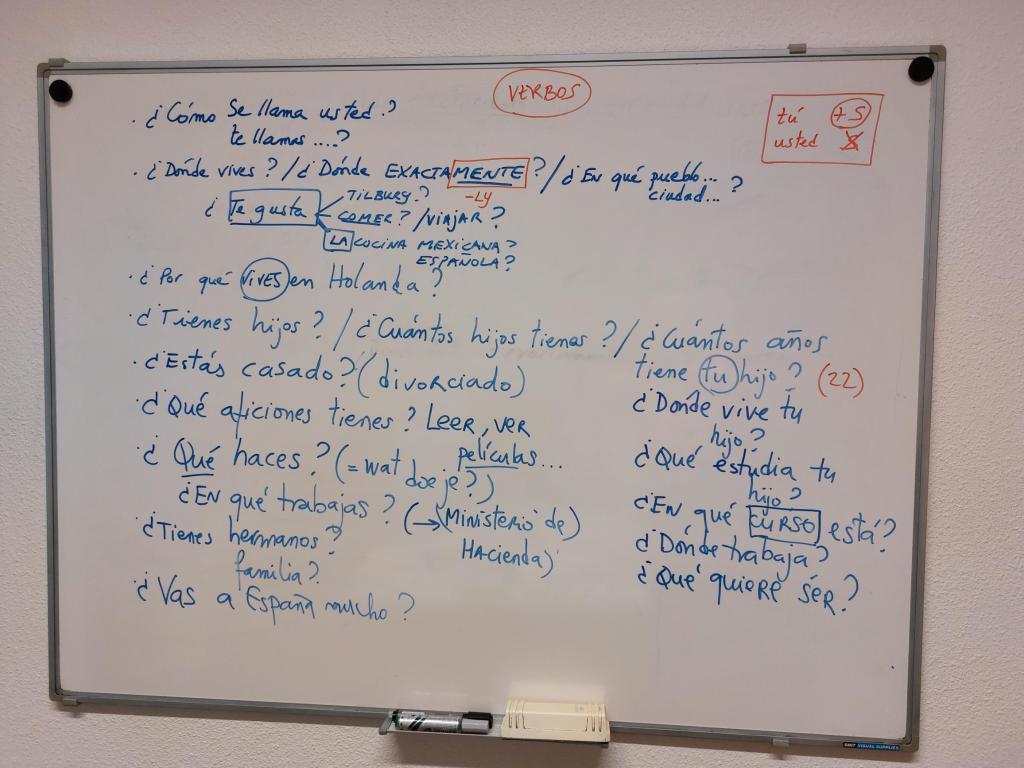 VERBOS
tú +S
usted S
. ¿Cómo se llama usted?
te llamas ....?
. ¿Dónde vives? / ¿Dónde EXACTAMENTE? / ¿En qué pueblo...
ciudad... ?
-LY
¿ Te gusta TILBURG?
COMER? / VIAJAR?
LA COCINA MEXICANA?
ESPAÑOLA?
. ¿Por qué VIVES en Holanda?
. ¿Tienes hijos? / ¿Cuántos hijos tienes? / ¿Cuántos años
tiene tu hijo? (22)
. ¿Estás casado? (divorciado)
¿Dónde vive tu
hijo?
¿Qué aficiones tienes? LEER, VER
películas...
¿Qué estúdia tu
hijo?
¿ Qué haces? (= wat doe je?)
¿EN qué trabajas? (→ MINISTERIO de)
HACIENDA)
¿EN qué CURSO está?
¿Tienes hermanos?
familia?
¿Dónde trabaja?
¿Qué quiere sér?
¿Vas a España mucho?